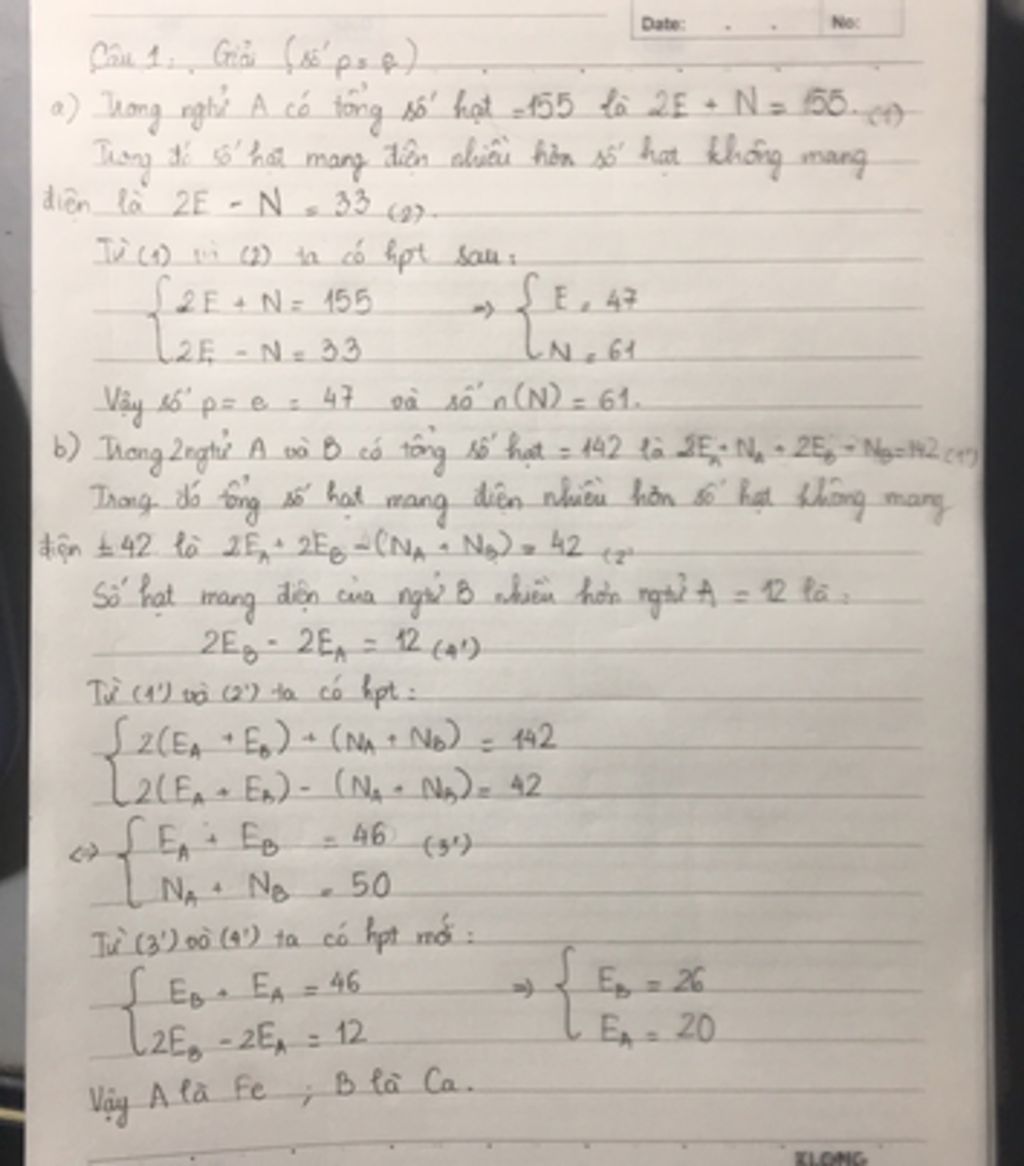 Date: . . No:
Câu 1: Giải (số p = e)
a) Trong ngtử A có tổng số hạt = 155 là 2E + N = 155. (1)
Trong đó số hạt mang điện nhiều hơn số hạt không mang
điện là 2E - N = 33 (2).
Từ (1) và (2) ta có hpt sau:
{ 2E + N = 155 => { E = 47
2E - N = 33 N = 61
Vậy số p = e = 47 và số n(N) = 61.
b) Trong 2 ngtử A và B có tổng số hạt = 142 là 2E_A + N_A + 2E_B + N_B = 142 (1')
Trong đó tổng số hạt mang điện nhiều hơn số hạt không mang
điện là 42 là 2E_A + 2E_B - (N_A + N_B) = 42 (2'
Số hạt mang điện của ngtử B nhiều hơn ngtử A = 12 là:
2E_B - 2E_A = 12 (4')
Từ (1') và (2') ta có hpt:
{ 2(E_A + E_B) + (N_A + N_B) = 142
2(E_A + E_B) - (N_A + N_B) = 42
<=> { E_A + E_B = 46 (3')
N_A + N_B = 50
Từ (3') và (4') ta có hpt mới:
{ E_B + E_A = 46 => { E_B = 26
2E_B - 2E_A = 12 E_A = 20
Vậy A là Fe ; B là Ca.
KLONG